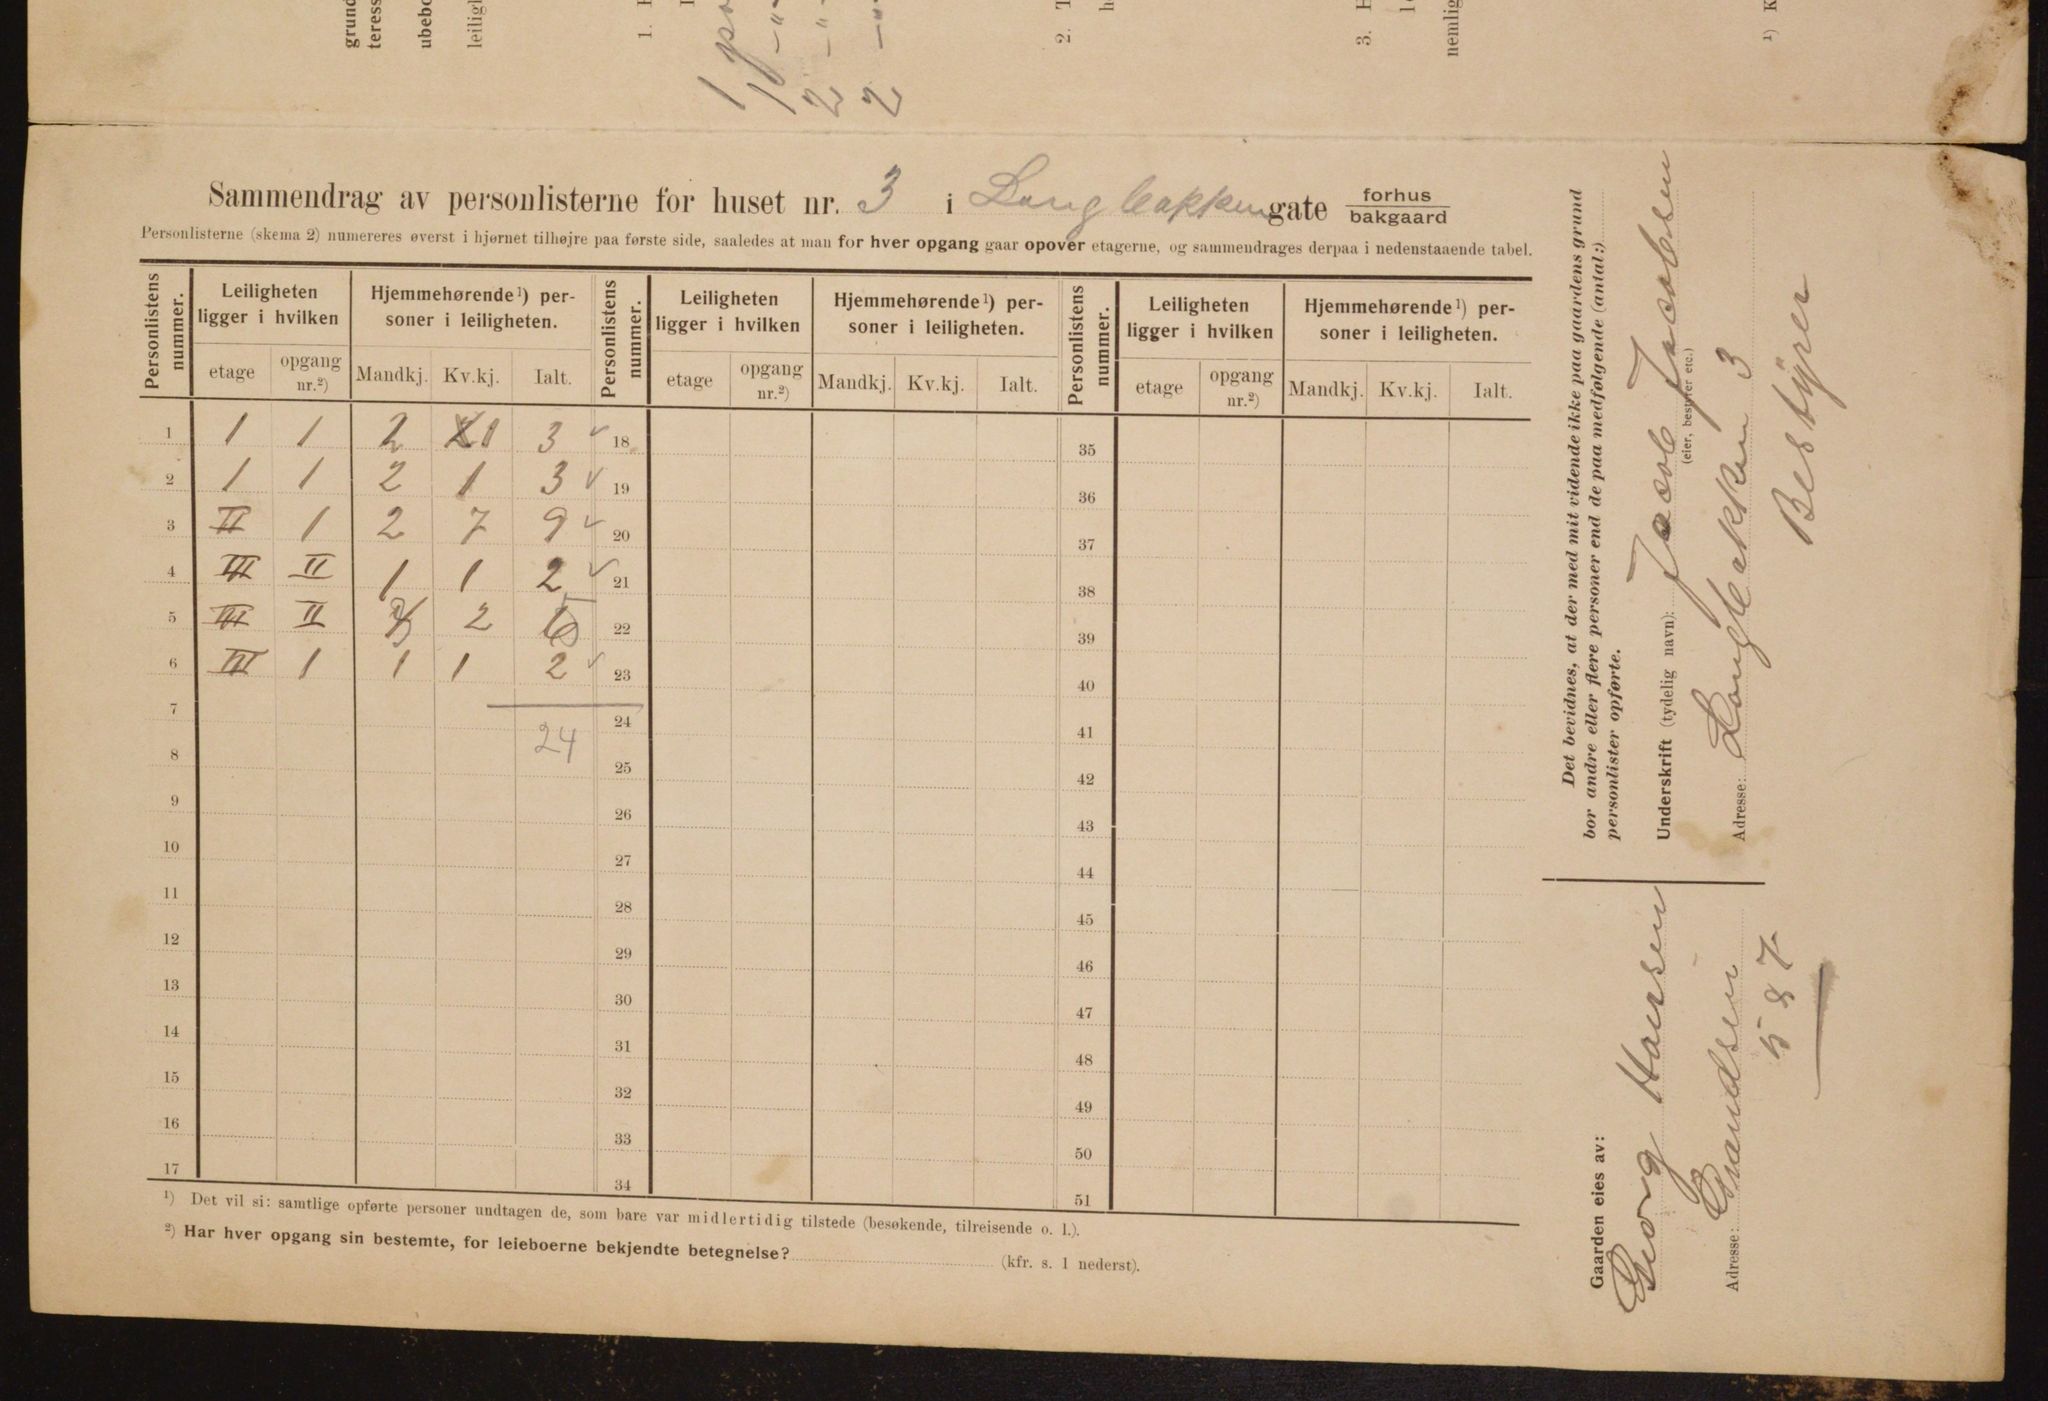 grund
teress
ubebo
leilig
1. H
2. T
3. H
nemlig
¹) K
1
1
2
2
Sammendrag av personlisterne for huset nr. 3 i Langbakkengate forhus bakgaard
Personlisterne (skema 2) numereres øverst i hjørnet tilhøjre paa første side, saaledes at man for hver opgang gaar opover etagerne, og sammendrages derpaa i nedenstaaende tabel.
Personlistens nummer. Leiligheten ligger i hvilken Hjemmehørende¹) personer i leiligheten. Personlistens nummer. Leiligheten ligger i hvilken Hjemmehørende¹) personer i leiligheten. Personlistens nummer. Leiligheten ligger i hvilken Hjemmehørende¹) personer i leiligheten.
etage opgang nr.²) Mandkj. Kv.kj. Ialt. etage opgang nr.²) Mandkj. Kv.kj. Ialt. etage opgang nr.²) Mandkj. Kv.kj. Ialt.
1 1 1 2 1 3 ✓ 18 35
2 1 1 2 1 3 ✓ 19 36
3 II 1 2 7 9 ✓ 20 37
4 III II 1 1 2 ✓ 21 38
5 III II 3 2 5 22 39
6 III 1 1 1 2 ✓ 23 40
7 24 41
8 24 25 42
9 26 43
10 27 44
11 28 45
12 29 46
13 30 47
14 31 48
15 32 49
16 33 50
17 34 51
¹) Det vil si: samtlige opførte personer undtagen de, som bare var midlertidig tilstede (besøkende, tilreisende o. l.).
²) Har hver opgang sin bestemte, for leieboerne bekjendte betegnelse? (kfr. s. 1 nederst).
Det bevidnes, at der med mit vidende ikke paa gaardens grund
bor andre eller flere personer end de paa medfølgende (antal:)
personlister opførte.
Underskrift (tydelig navn): Jacob Jacobsen
(eier, bestyrer etc.)
Adresse: Langbakken 3
Bestyrer
Gaarden eies av:
Georg Hansen
Adresse: Trondsen
587